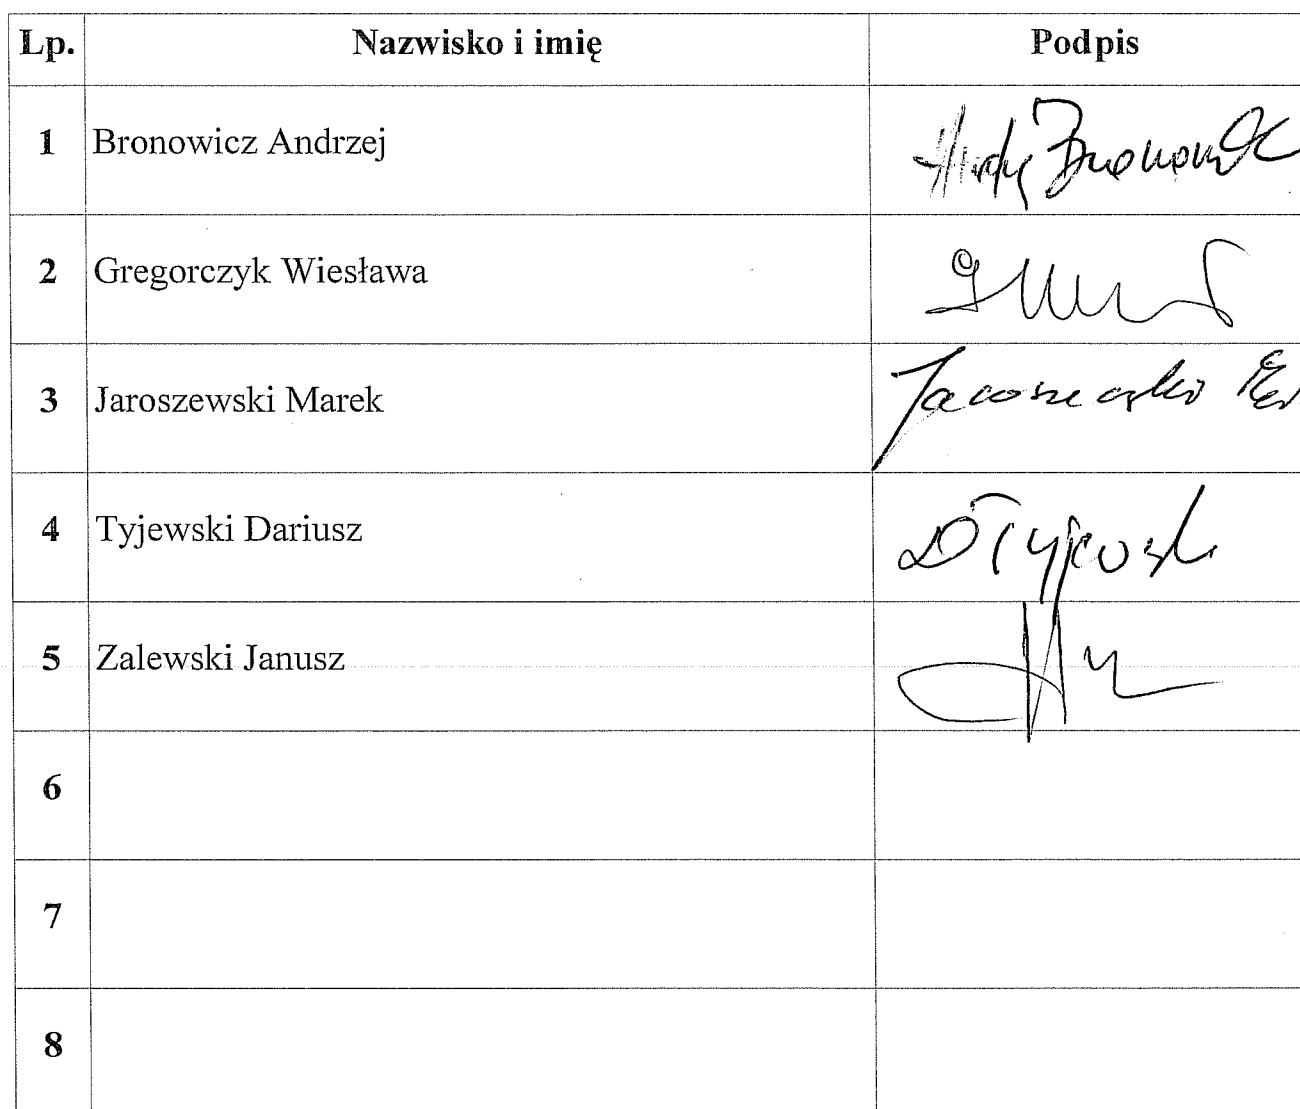 Lp. Nazwisko i imię Podpis
1 Bronowicz Andrzej
2 Gregorczyk Wiesława
3 Jaroszewski Marek Jaroszewski
4 Tyjewski Dariusz D Tyjewsk
5 Zalewski Janusz
6
7
8